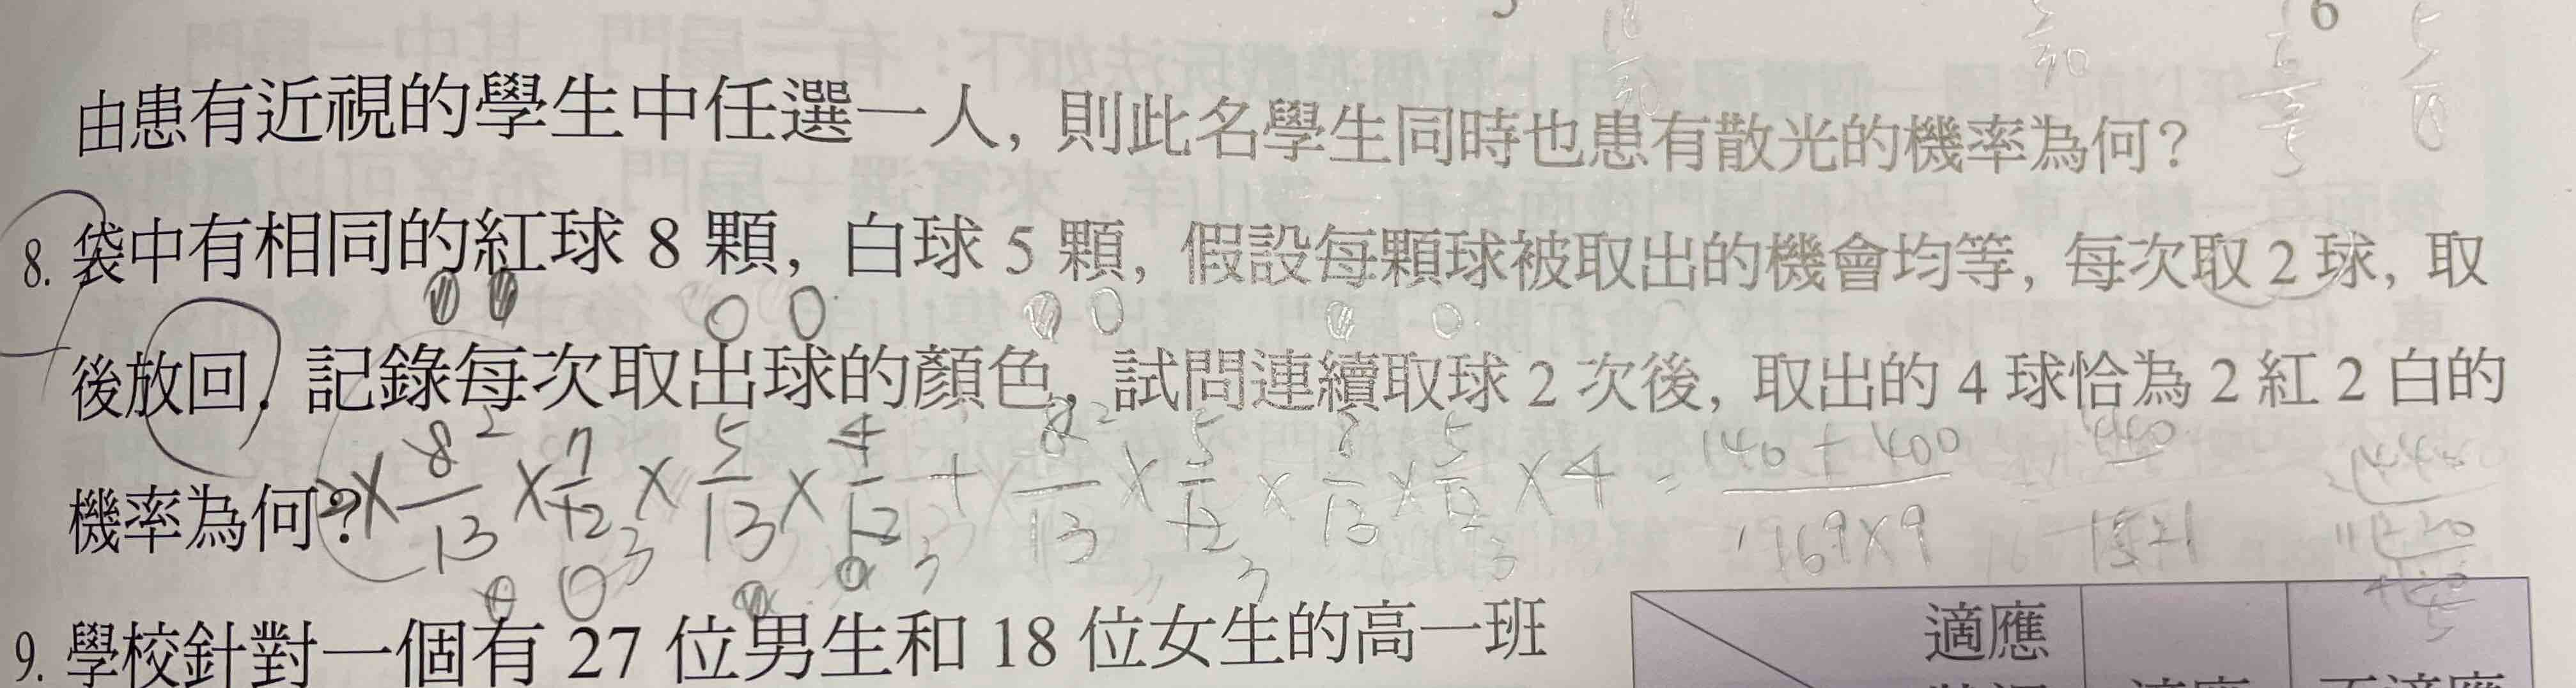 由患有近視的學生中任選一人, 則此名學生同時也患有散光的機率為何?
8. 袋中有相同的紅球 8 顆, 白球 5 顆, 假設每顆球被取出的機會均等, 每次取 2 球, 取
後放回, 記錄每次取出球的顏色, 試問連續取球 2 次後, 取出的 4 球恰為 2 紅 2 白的
機率為何?
2×8/13×7/12×5/13×4/12+8/13×5/12×8/13×5/12×4=140+400/169×9
9. 學校針對一個有 27 位男生和 18 位女生的高一班
適應